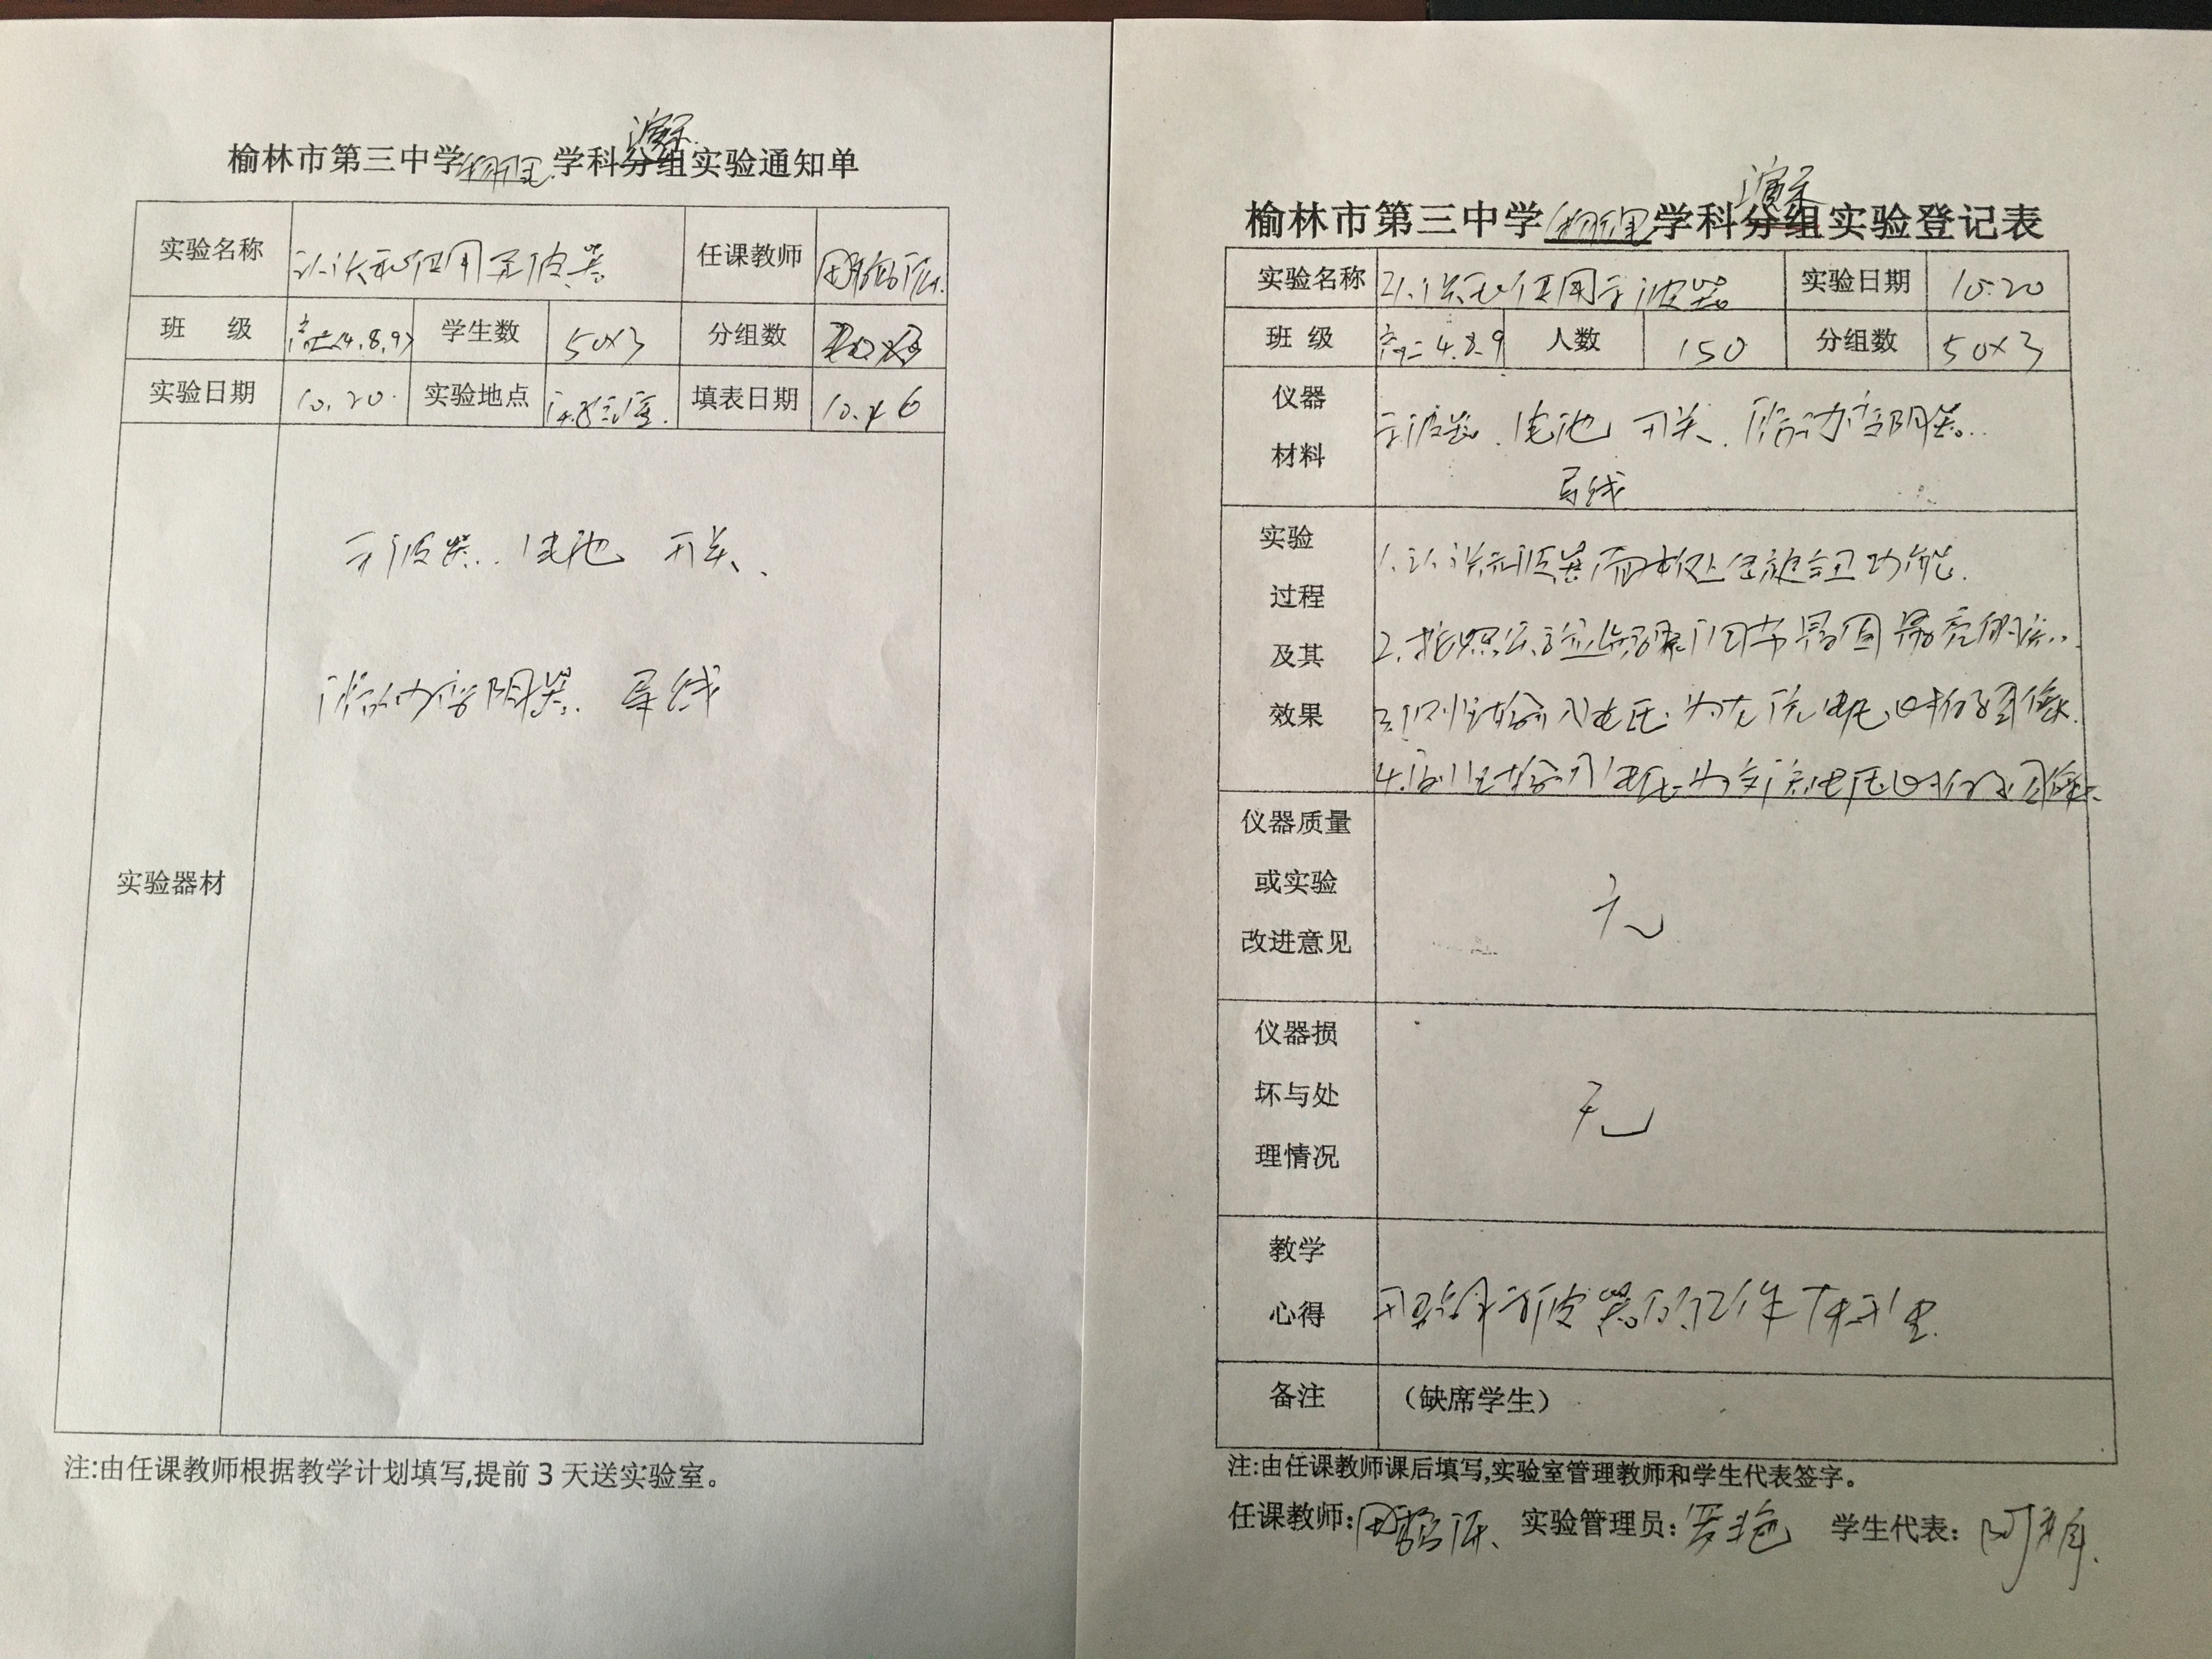 演示
榆林市第三中学物理学科分组实验通知单
实验名称 认识和使用示波器 任课教师
班 级 高二<4.8.9> 学生数 50×3 分组数
实验日期 10.20. 实验地点 填表日期 10.16
示波器. 电池 开关、
滑动变阻器. 导线
实验器材
注:由任课教师根据教学计划填写,提前 3 天送实验室。
演示
榆林市第三中学物理学科分组实验登记表
实验名称 认识和使用示波器 实验日期 10.20
班 级 高二4.8.9 人数 150 分组数 50×3
仪器
材料
示波器. 电池 开关. 滑动变阻器.
导线
实验
过程
及其
效果
1.认识示波器面板处各旋钮功能.
2.按照实验步骤调节
3.观察输入电压为直流电压时的图像.
4.输入电压为交流电压时的图像.
仪器质量
或实验
改进意见
无
仪器损
坏与处
理情况
无
教学
心得
示波器的工作原理.
备注 (缺席学生)
注:由任课教师课后填写,实验室管理教师和学生代表签字。
任课教师: 实验管理员: 罗艳 学生代表: